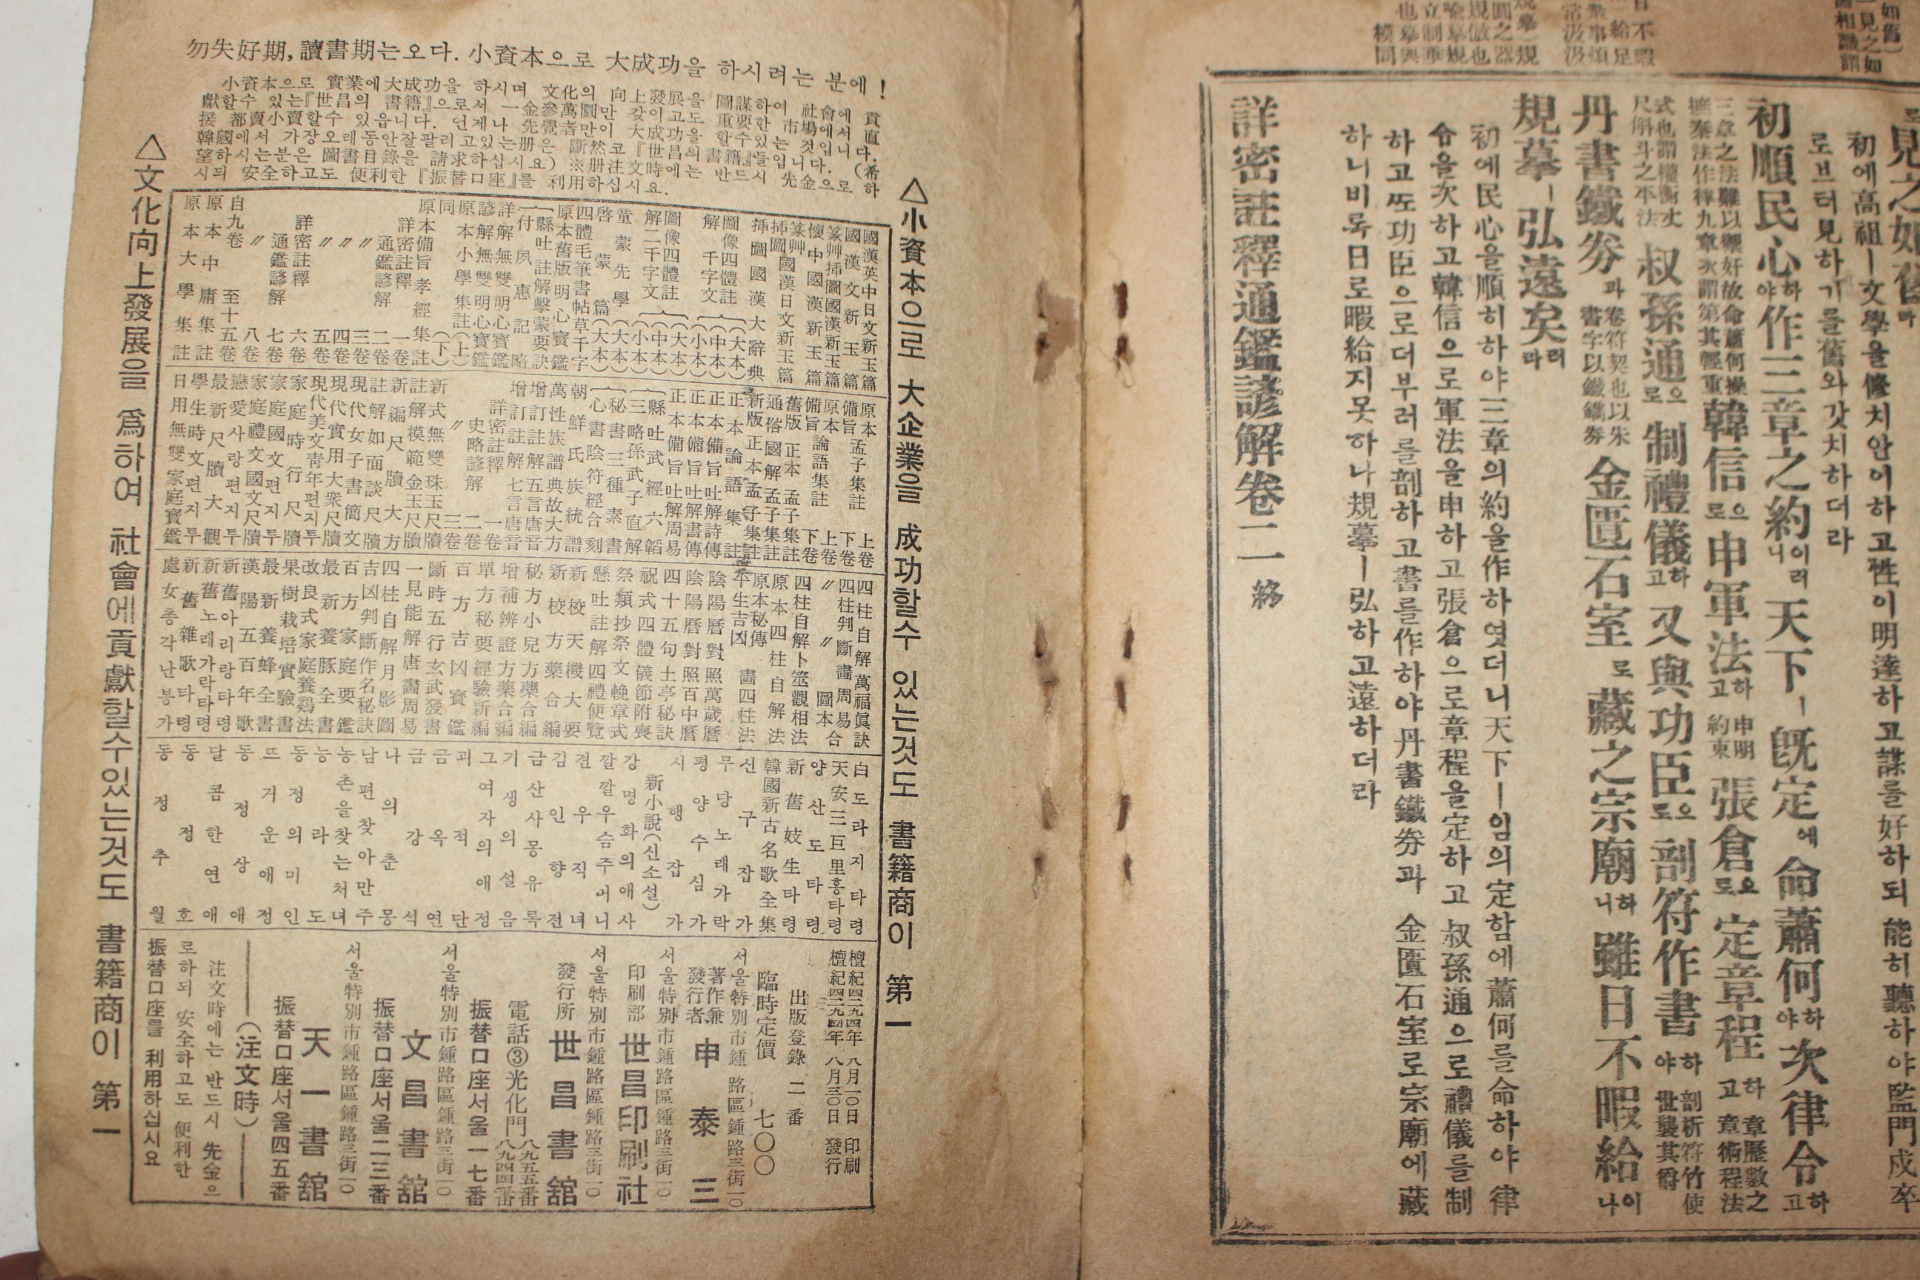 見之如舊라
初에高祖ㅣ文學을修치안이하고性이明達하고謀를好하되能히聽하야監門戍卒
로브터見하기를舊와갓치하더라
初順民心하야作三章之約이러니天下ㅣ旣定에命蕭何하야次律令하고
韓信으로申軍法하고申明約束張倉으로定章程하고章歷數之章術程法
叔孫通으로制禮儀하고又與功臣으로剖符作書하야剖析符竹使世襲其爵
丹書鐵券과金匱石室로藏之宗廟하니雖日不暇給이나
規摹ㅣ弘遠矣러라
初에民心을順히하야三章의約을作하엿더니天下ㅣ임의定함에蕭何를命하야律
슈을次하고韓信으로軍法을申하고張倉으로章程을定하고叔孫通으로禮儀를制
하고또功臣으로더부러를剖하고書를作하야丹書鐵券과金匱石室로宗廟에藏
하니비록日로暇給지못하나規摹ㅣ弘하고遠하더라
詳密註釋通鑑諺解卷二 終
勿失好期, 讀書期는오다. 小資本으로 大成功을 하시려는 분에!
△小資本으로 大企業을 成功할수 있는것도 書籍商이 第一
國漢英中日文新玉篇
國漢文新玉篇
篆艸挿圖國漢新玉篇
懷中國漢新玉篇
挿圖國漢日文新玉篇
挿圖國漢大辭典
圖像四體註解千字文(大本)
(中本)
圖像四體註解二千字文(大本)
(中本)
(小本)
童蒙先學(大本)
啓蒙篇(大本)
四體毛筆書帖草千字
原本舊版明心寶鑑
懸吐註解擊蒙要訣
付夙惠記略
詳解無雙明心寶鑑
諺解無雙明心寶鑑
原本小學集註(上)
同(下)
原本備旨孝經集註
詳密註釋通鑑諺解 一卷
〃 二卷
〃 三卷
〃 四卷
〃 五卷
詳密註釋通鑑諺解 六卷
〃 七卷
〃 八卷
自九卷 至十五卷
原本中庸集註
原本大學集註
原本備旨孟子集註 上卷
下卷
原本備旨論語集註 上卷
下卷
舊版正本孟子集註
通俗國解孟子集註
新版正本孟子集註
正本論語集註
正本備旨吐解詩傳
正本備旨吐解書傳
正本備旨吐解周易
懸吐武經六韜
三略孫武子直解
秘書三種素書
心書陰符經合刻
朝鮮氏族統譜
萬性族譜典故大方
增訂註解五言唐音
增訂註解七言唐音
詳密註釋史略諺解 一卷
二卷
〃 三卷
新式無雙珠玉尺牘
註解模範金玉尺牘
新編尺牘大方
註解如面談尺牘
現代女子書簡文
現代實用大衆尺牘
現代美文靑年편지투
家庭時行尺牘
家庭國文편지투
家庭禮文國文尺牘
戀愛사랑편지투
最新尺牘大觀
學生時文편지투
日用無雙家庭寶鑑
四柱自解萬福眞訣
四柱判斷晝周易
〃 〃 圖本合
四柱自解卜筮觀相法
原本四柱自解法
原本秘傳平生吉凶畵四柱法
陰陽曆對照萬歲曆
陰陽曆對照百中曆
四十五句土亭秘訣
祝式四體儀節附喪
祭類抄祭文輓章式
懸吐註解四禮便覽
新校天機大要
新校方藥合編
秘方小兒方藥合編
增補辨證方藥合編
單方秘要經驗新編
百方吉凶寶鑑
斷時五行玄武發書
一見能解唐畵周易
四柱自解月影圖
吉凶判斷作名秘訣
百方家庭要鑑
最新養豚全書
改良式家庭養鷄法
果樹栽培實驗書
最新養蜂全書
漢陽五百年歌
新舊아리랑타령
新舊노래가락타령
新舊雜歌타령
處女총각난봉가
白도라지타령
天安三巨里흥타령
양산도타령
新舊妓生타령
韓國新古名歌全集
신구잡가
무당노래가락
평양수심가
시행잡가
新小說(신소설)
강명화의애사
깔깔우슴주머니
견우직녀
김인향젼
금산사몽유록
기생의설음
그여자의애정
괴적단
금옥연
금강석
나의춘몽
남편찾아만주
농촌을찾는처녀
능라도
동정의미인
뜨거운애정
동정상애
달콤한연애
동정호
동정추월
檀紀四二九四年 八月二〇日 印刷
檀紀四二九四年 八月三〇日 發行
出版登錄 二番
臨時定價 七〇〇
서울特別市鍾路區鍾路三街一〇
著作兼發行者 申泰三
서울特別市鍾路區鍾路三街一〇
印刷部 世昌印刷社
서울特別市鍾路區鍾路三街一〇
發行所 世昌書舘
電話③光化門 八九五五番
八九四四番
振替口座서울一七番
서울特別市鍾路區鍾路三街一〇
文昌書舘
振替口座서울二三番
서울特別市鍾路區鍾路三街一〇
天一書舘
振替口座서울四五番
(注文時)
注文時에는 반드시 先金으
로하되 安全하고도 便利한
振替口座를 利用하십시요
△文化向上發展을 爲하여 社會에貢獻할수있는것도 書籍商이 第一